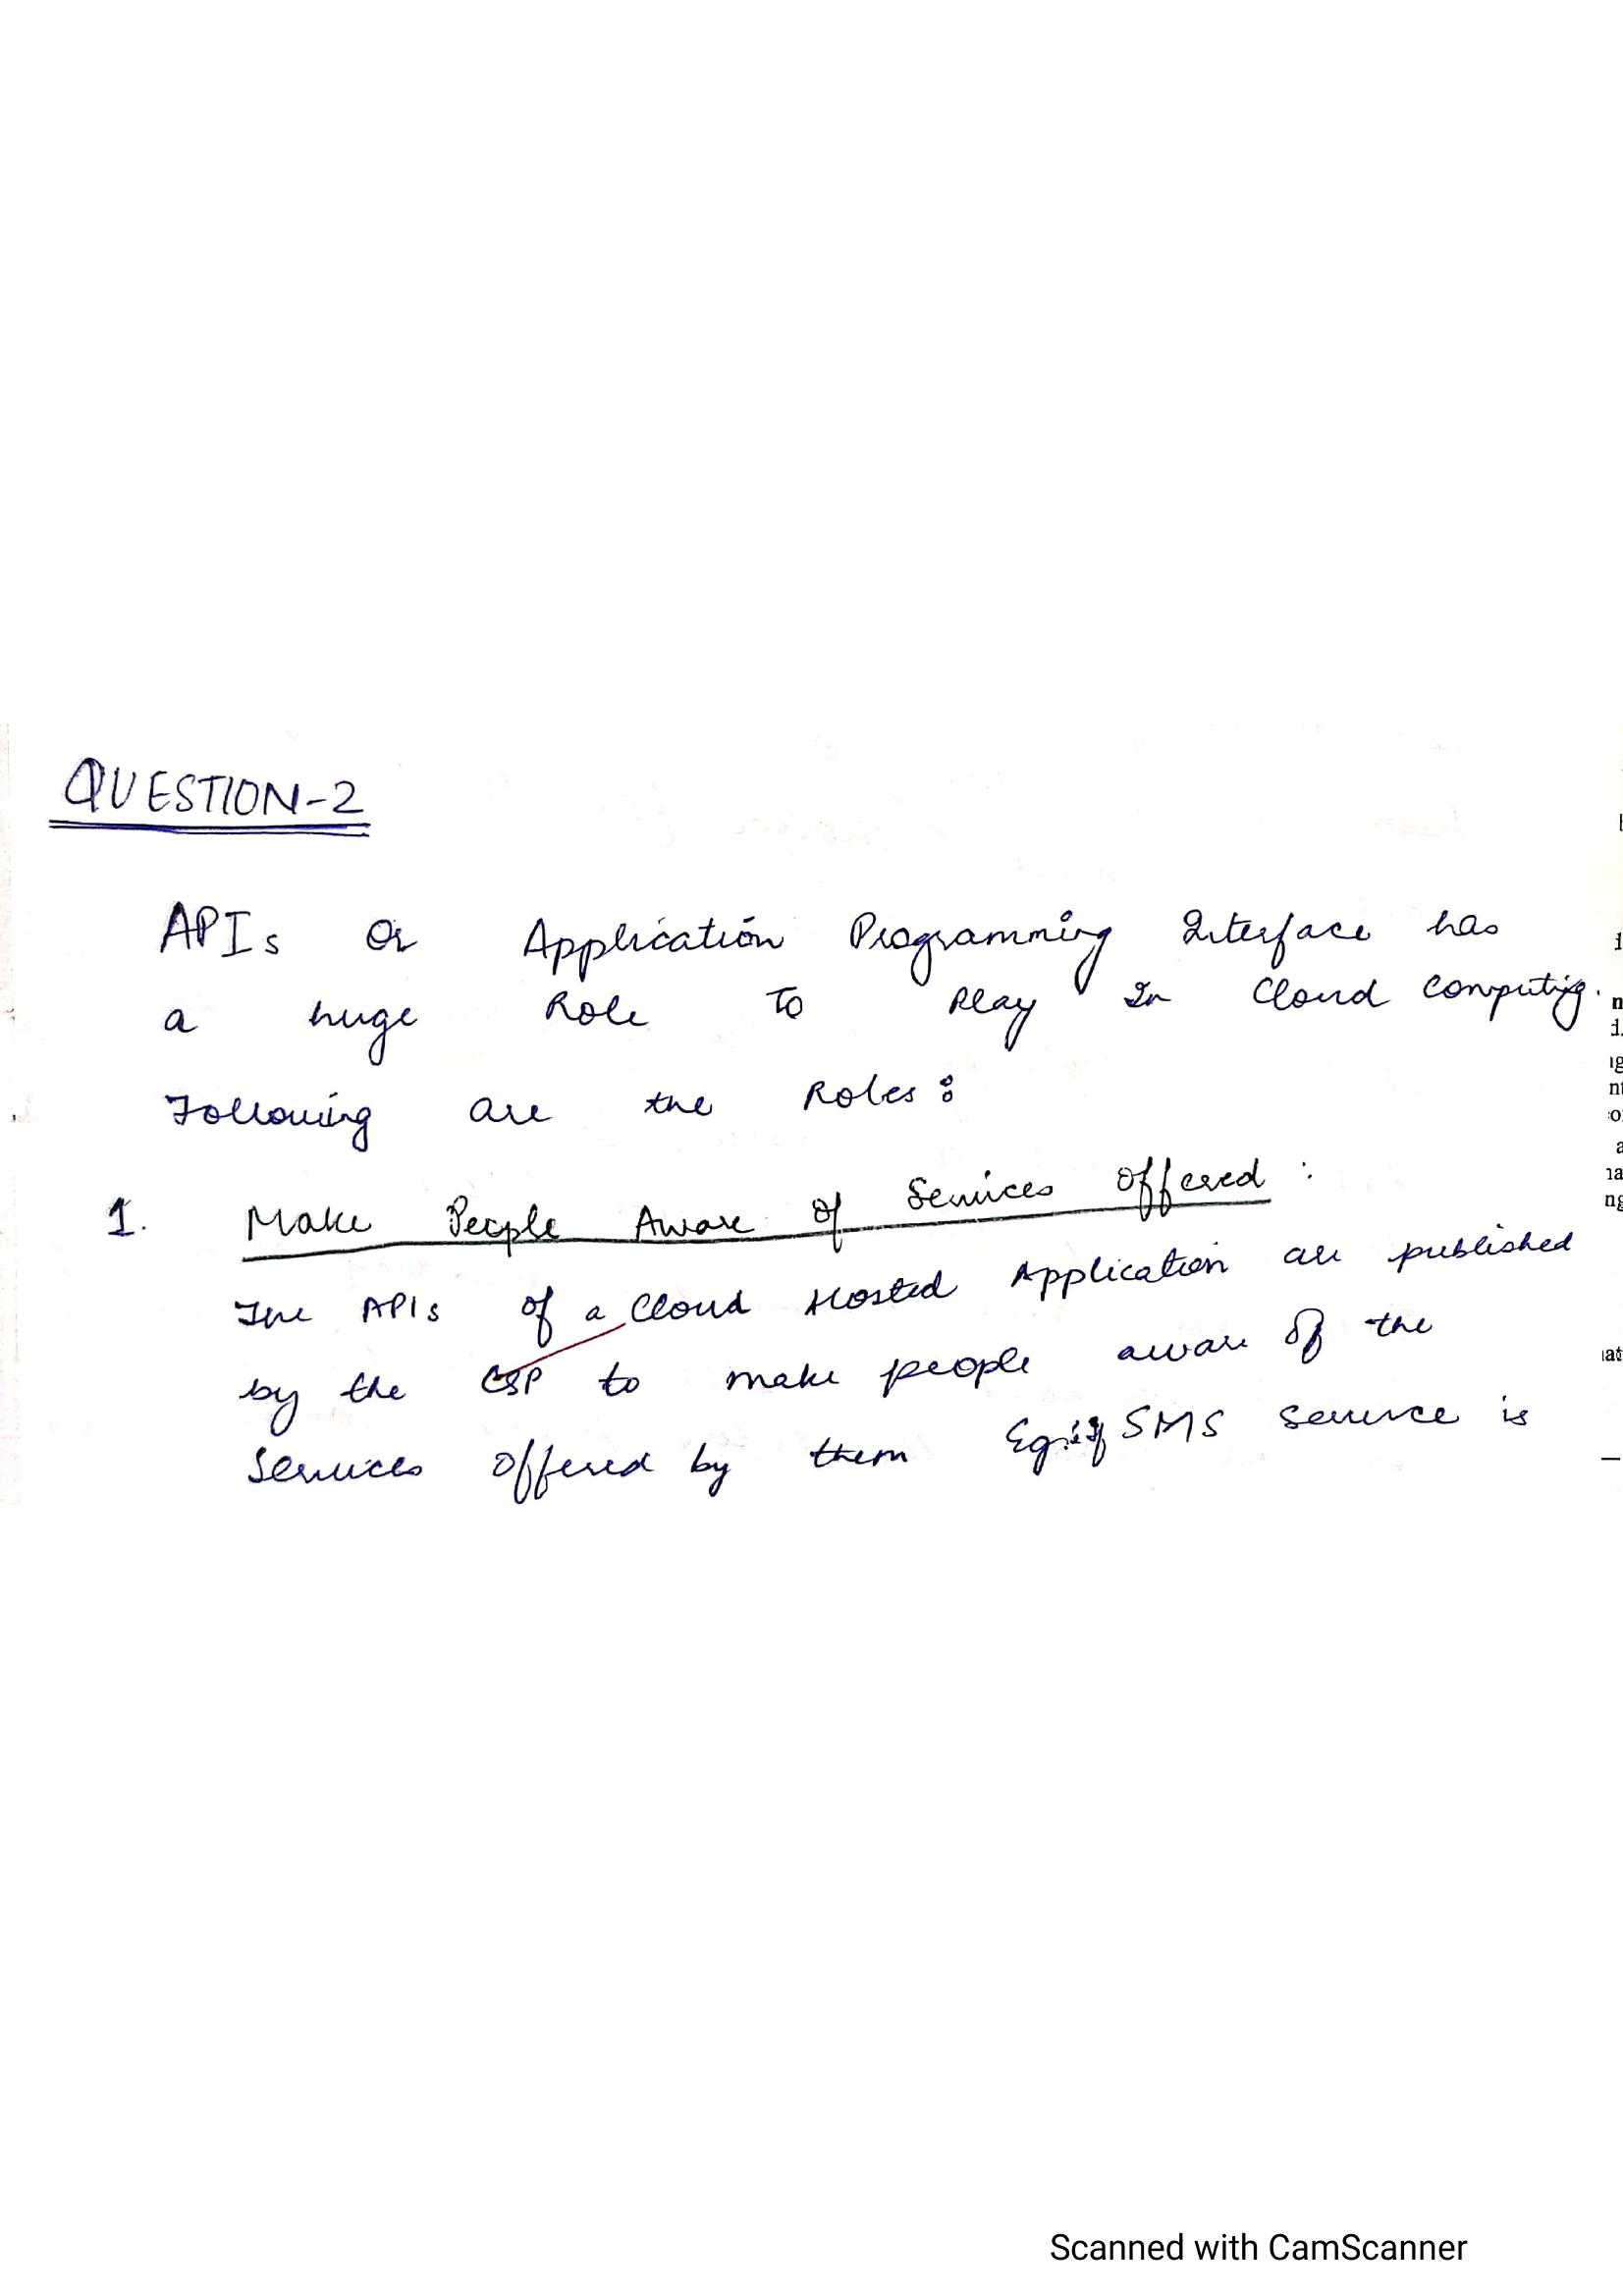 QUESTION-2
APIs or Application Programming Interface has
a huge Role To Play In Cloud Computing.
Following are the Roles:
1. Make People Aware of Services Offered :
The APIs of a Cloud Hosted Application are published
by the CSP to make people aware of the
Services offered by them Eg: if SMS service is
Scanned with CamScanner